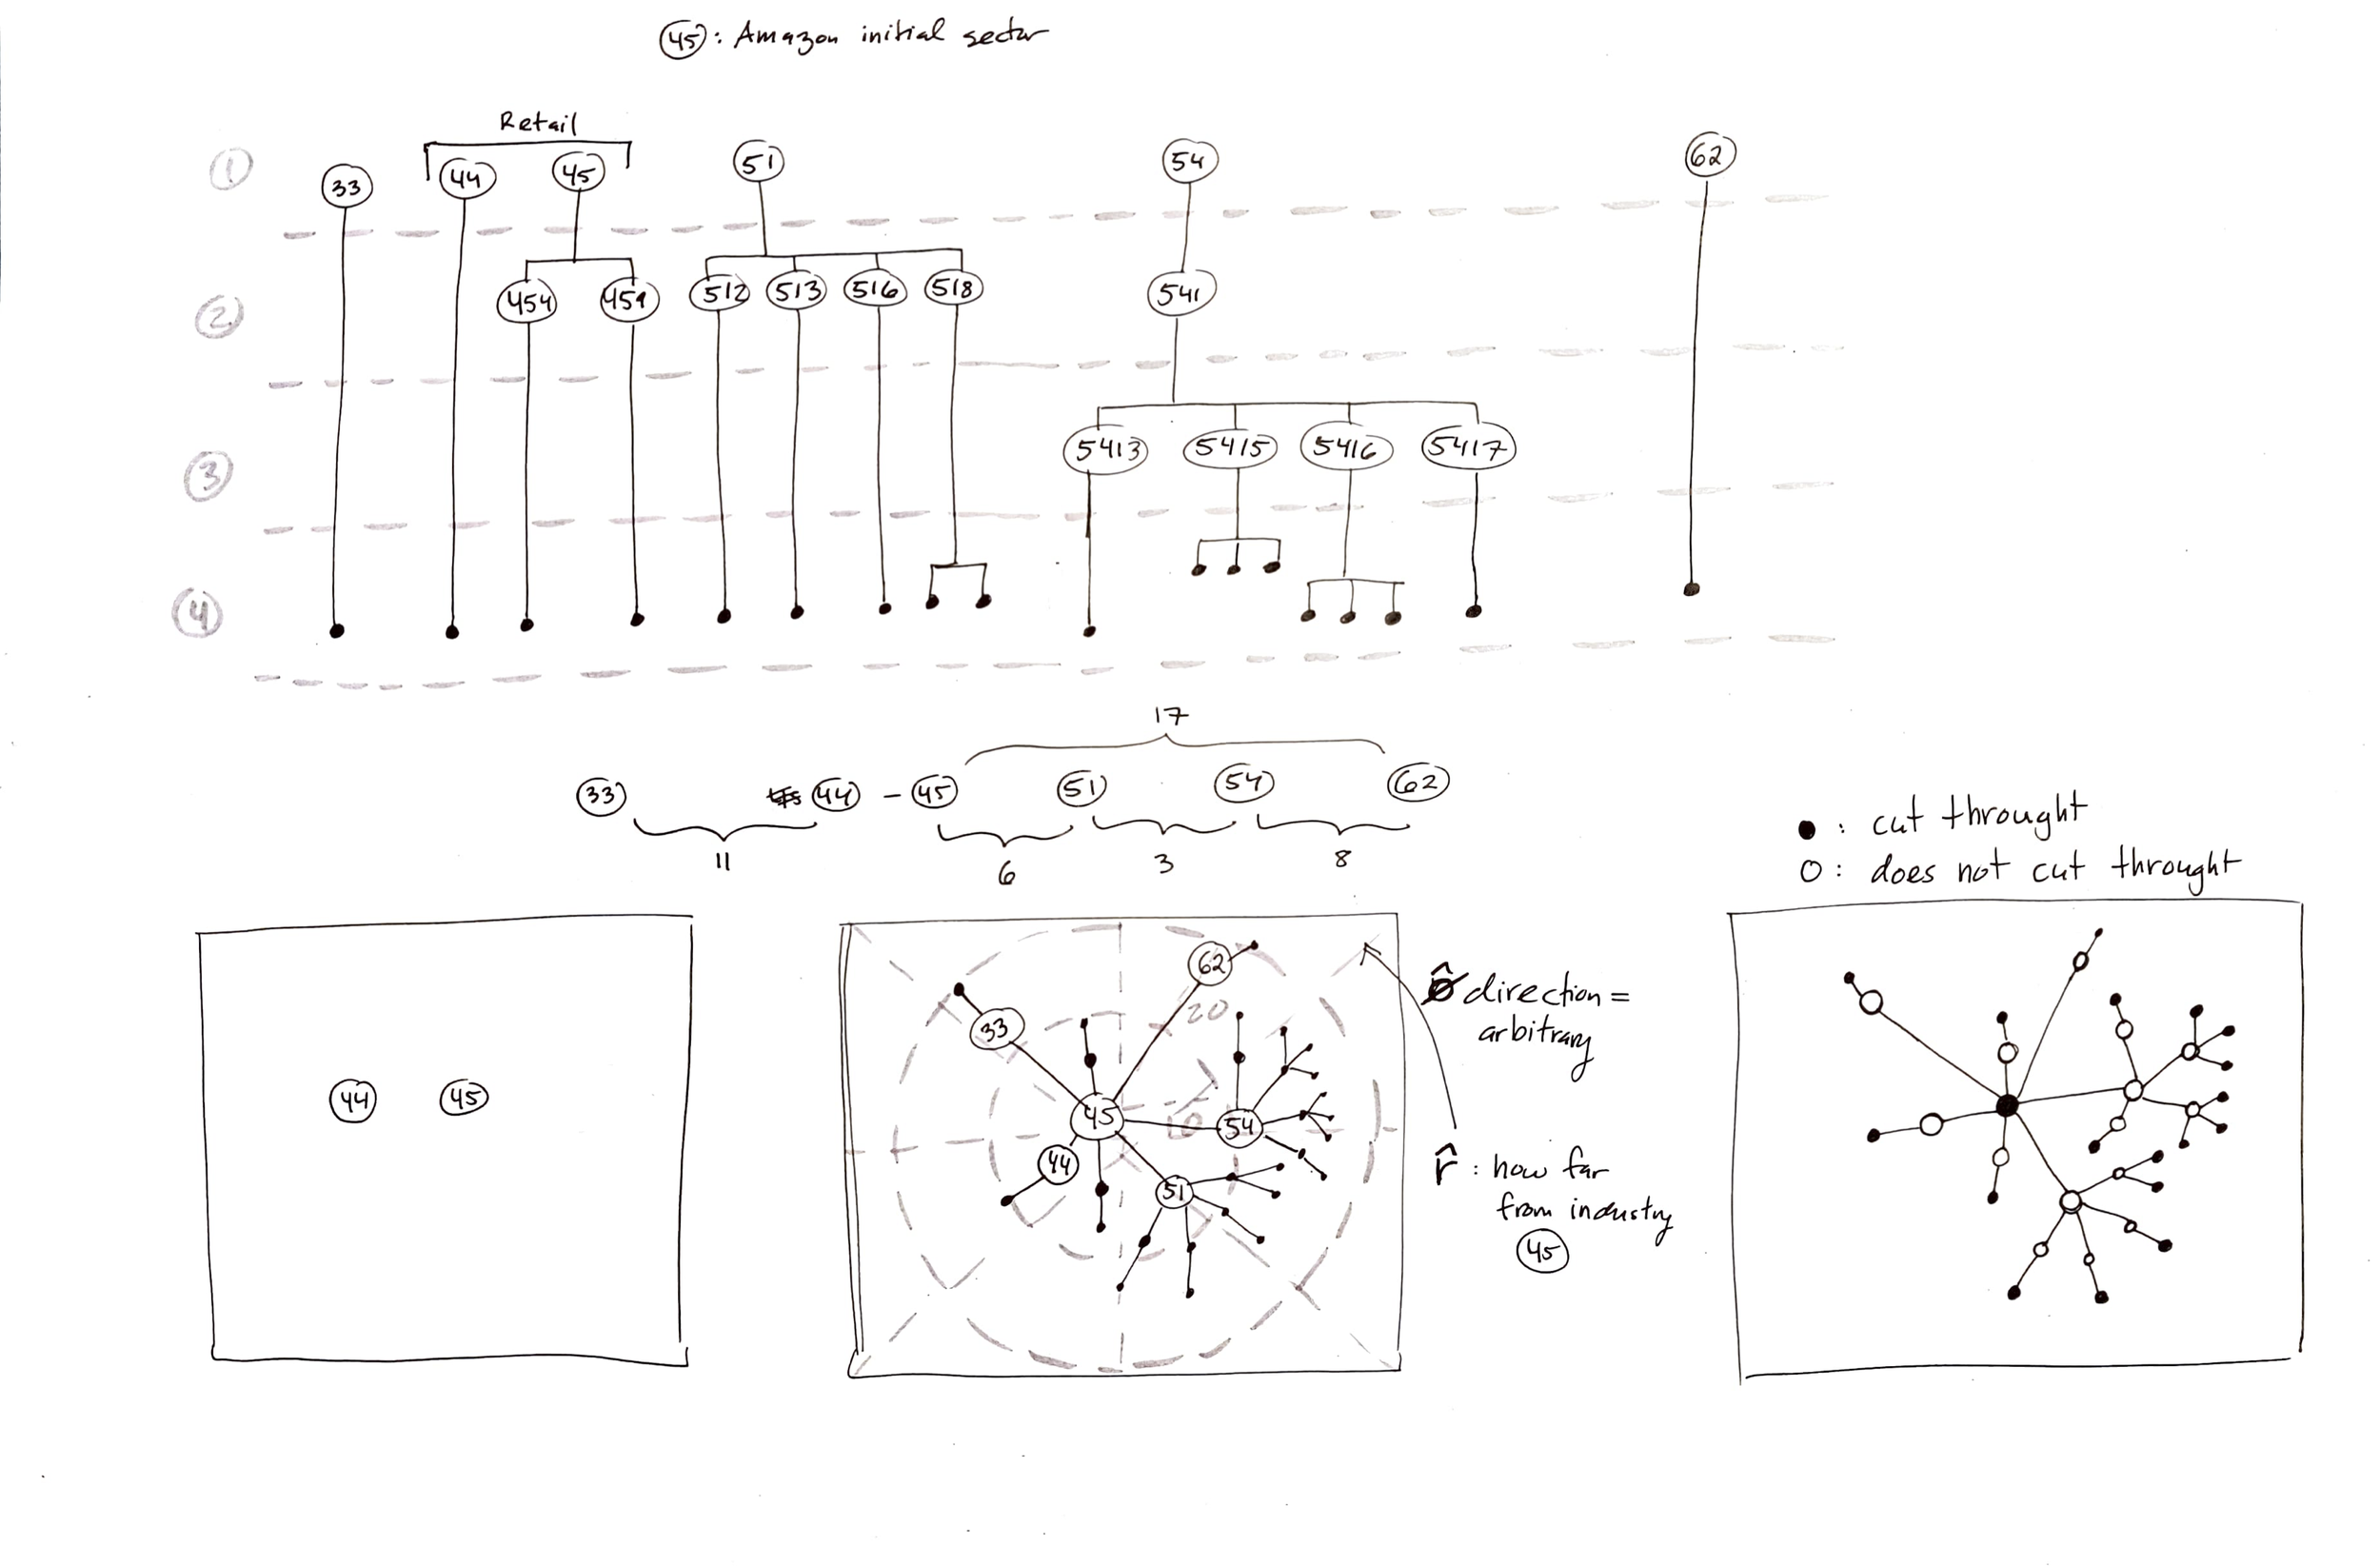 45: Amazon initial sector
Retail
1
33 44 45 51 54 62
2
454 459 512 513 516 518 541
3
5413 5415 5416 5417
4
17
33 44 - 45 51 54 62
11 6 3 8
●: cut throught
○: does not cut throught
44 45
62
33
20
45
10
54
44
51
direction =
arbitrary
r̂: how far
from industry
45